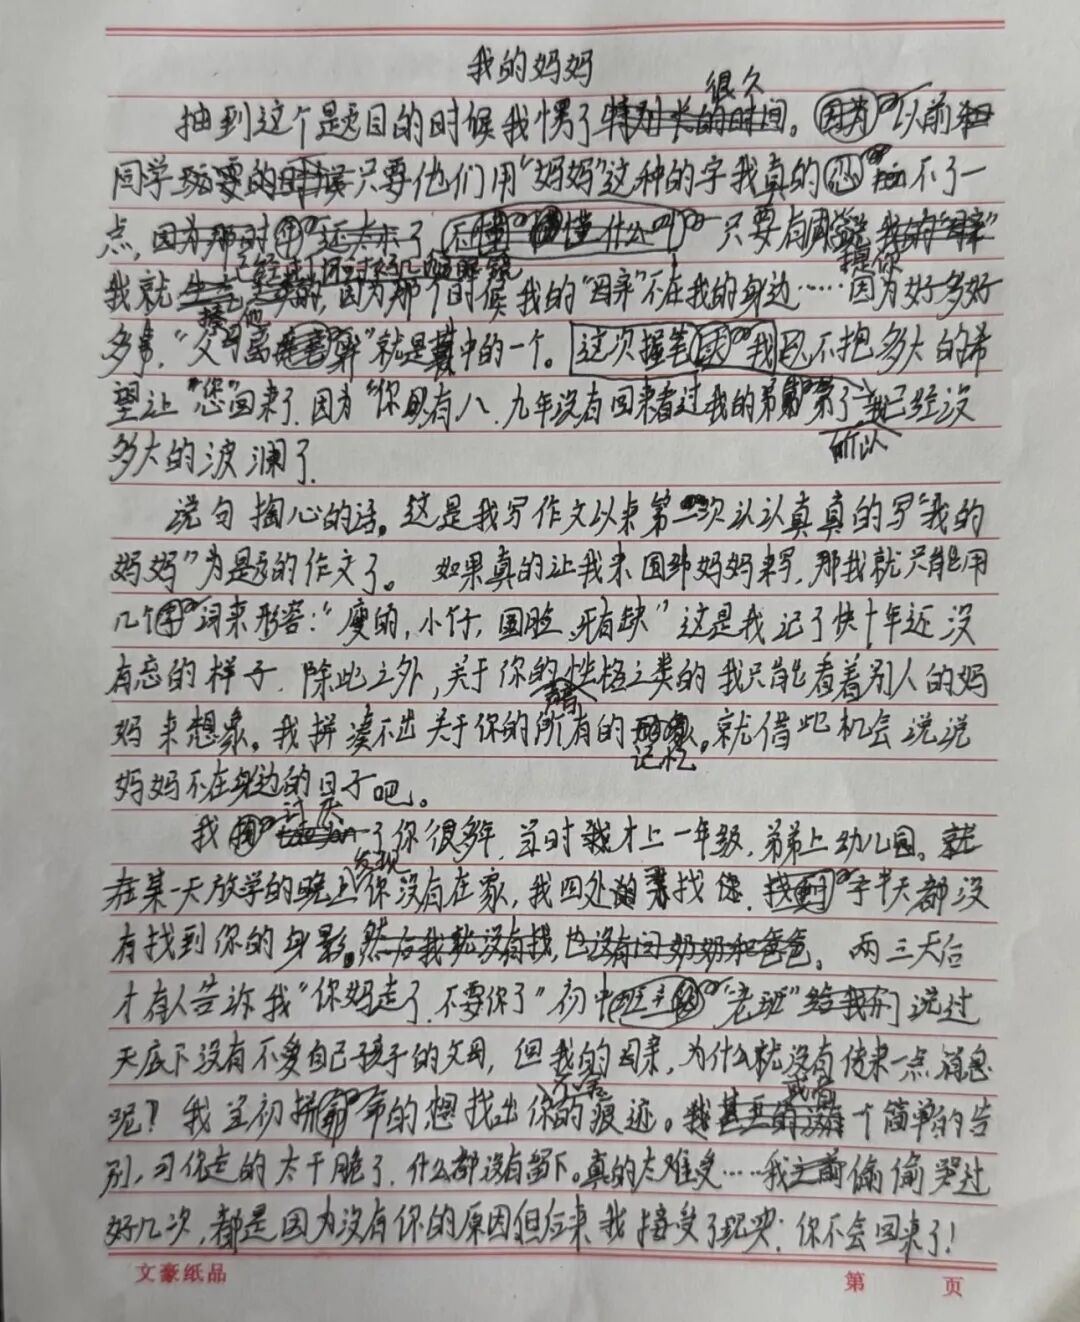 我的妈妈
很久
抽到这个是题目的时候我愣了特别长的时间。因为以前
同学玩耍的时候只要他们用“妈妈”这种的字我真的忍不了一
点,因为那时还太小了不懂什么叫 只要有同学说我的“母亲”
提你
我就生气 因为那个时候我的“母亲”不在我的身边……因为好多好
揍他
多事,“父母离异”就是其中的一个。这次握笔 我已不抱多大的希
望让“您”回来了,因为“你”都有八、九年没有回来看过我的弟弟了,我已经没
所以
多大的波澜了.
说句掏心的话,这是我写作文以来第一次认认真真的写“我的
妈妈”为题的作文了。 如果真的让我来围绕妈妈来写,那我就只能用
几个词来形容:“瘦的,小仔,圆脸,牙有缺”这是我记了快十年还没
有忘的样子. 除此之外,关于你的性格之类的我只能看着别人的妈
妈来想象。我拼凑不出关于你的所有的 。就借此机会说说
声音
记忆
妈妈不在身边的日子吧。
讨厌
我 了你很多年,当时我才上一年级,弟弟上幼儿园。就
发现
在某一天放学的晚上你没有在家,我四处的寻找您,找 半天都没
有找到你的身影。然后我就没有找,也没有问奶奶和爸爸。两三天后
才有人告诉我“你妈走了,不要你了”初中班主任“老班”给我们说过
天底下没有不爱自己孩子的父母,但我的母亲,为什么就没有传来一点消息
呢?我当初拼命的想找出你的痕迹。我甚至的没有一个简单的告
或者
别,可你走的太干脆了,什么都没有留下。真的太难受……我之前偷偷哭过
好几次,都是因为没有你的原因但后来我接受了现实:你不会回来了!
文豪纸品
第 页